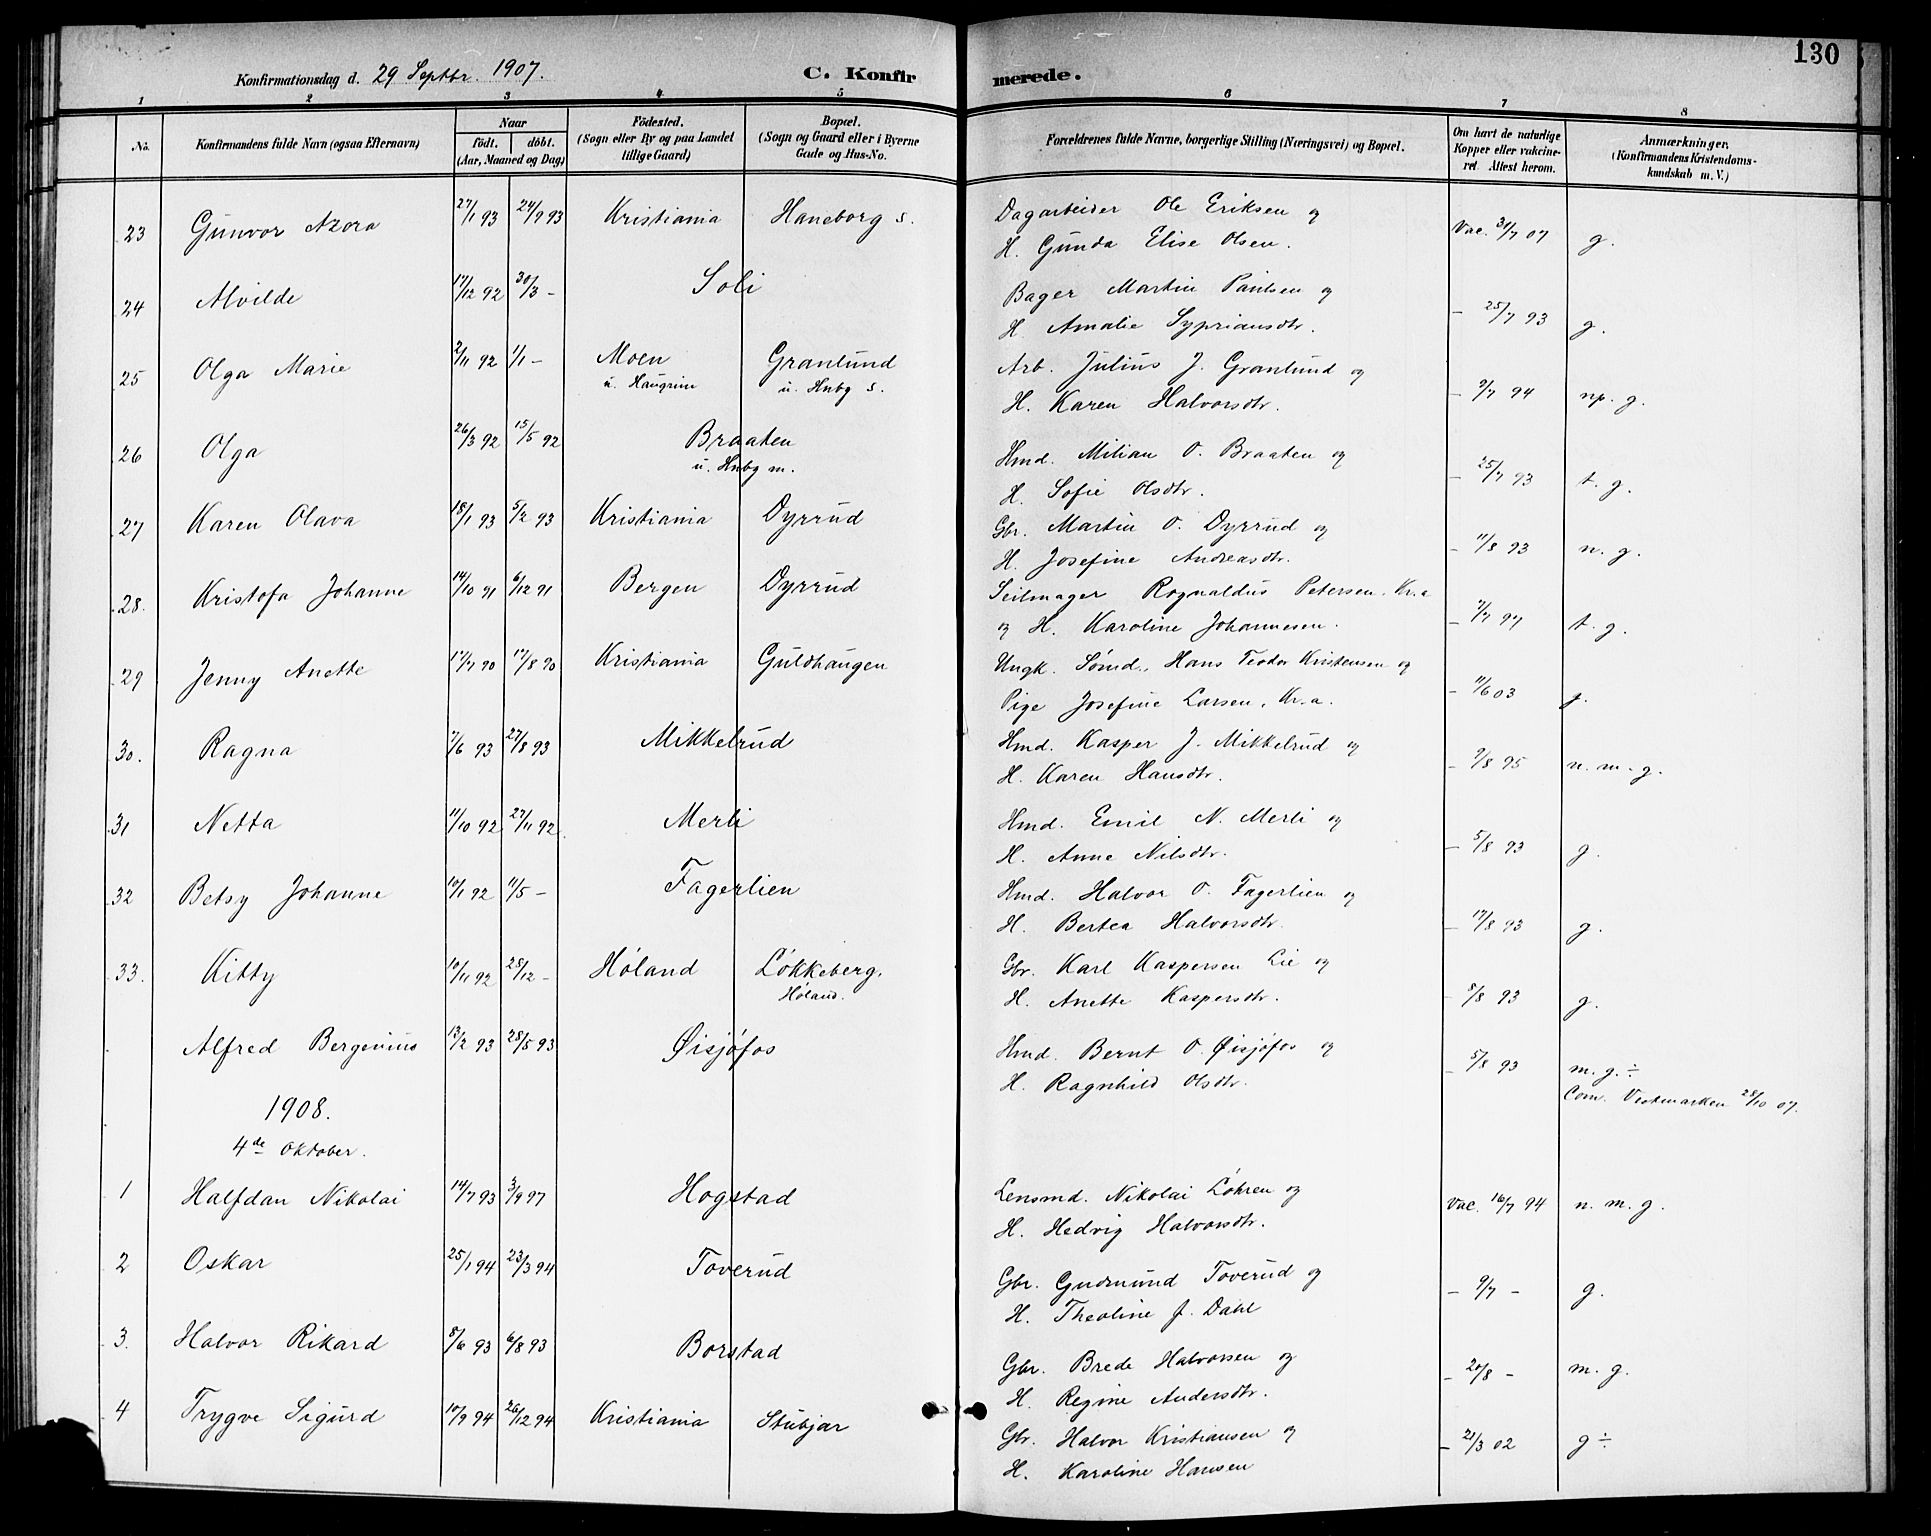 130
Konfirmationsdag d. 29 Septbr. 1907.
C. Konfirmerede.
1 2 3 4 5 6 7 8
No.
Konfirmandens fulde Navn (ogsaa Efternavn)
Naar
födt. döbt.
(Aar, Maaned og Dag)
Födested.
(Sogn eller By og paa Landet
tillige Gaard)
Bopæl.
(Sogn og Gaard eller i Byerne
Gade og Hus-No.
Forældrenes fulde Navne, borgerlige Stilling (Næringsvei) og Bopæl.
Om havt de naturlige
Kopper eller vakcine-
ret. Attest herom.
Anmærkninger.
(Konfirmandens Kristendoms-
kundskab m. V.)
23 Gunvor Azora 27/1 93 24/9 93 Kristiania Haneborg s. Dagarbeider Ole Eriksen og
H. Gunda Elise Olsen. Vac. 31/7 07 g.
24 Alvilde 17/12 92 30/3 - Soli Bager Martin Paulsen og
H Amalie Sypriansdtr. - 25/7 93 g.
25 Olga Marie 2/11 92 1/1 - Moen Granlund Arb. Julius J. Granlund og
u. Haugrim u. Hnbg s. H. Karen Halvorsdtr. - 9/7 94 np. g.
26 Olga 26/3 92 15/5 92 Braaten Hmd. Milian O. Braaten og
u. Hnbg m. H. Sofie Olsdtr. - 25/7 93 t. g.
27 Karen Olava 18/1 93 5/2 93 Kristiania Dyrrud Gbr. Martin O. Dyrrud og
H. Josefine Andreasdtr. - 11/8 93 n. g.
28. Kristofa Johanne 14/10 91 6/12 91 Bergen Dyrrud Seilmager Rognaldus Petersen. Kr.a
og H. Karoline Johannesen. - 7/7 97 t. g.
29 Jenny Anette 17/7 90 17/8 90 Kristiania Guldhaugen Ungk. Sømd. Hans Teodor Kristensen og
Pige Josefine Larsen, Kr.a. - 11/6 03 g.
30. Ragna 7/6 93 27/8 93 Mikkelrud Hmd. Kasper J. Mikkelrud og
H. Karen Hansdtr. - 9/8 95 n. m. g.
31 Netta 11/10 92 27/11 92. Merli Hmd. Emil N. Merli og
H. Anne Nilsdtr. - 5/8 93 g.
32 Betsy Johanne 10/1 92 11/5 - Fagerlien Hmd. Halvor O. Fagerlien og
H. Bertea Halvorsdtr. - 17/8 93 g.
33. Kitty 10/11 92 28/12 - Høland Løkkeberg, Gbr. Karl Kaspersen Lie og
Høland. H. Anette Kaspersdtr. - 8/8 93 g.
Alfred Bergenius 13/2 93 28/5 93 Øisjøfos Hmd. Bernt O. Øisjøfos og
H. Ragnhild Olsdtr. - 5/8 93 m. g. ÷
Com. Vestmarken 28/10 07.
1908.
4de Oktober.
1 Halfdan Nikolai 14/7 93 3/9 97 Hogstad Lensmd. Nikolai Løhren og
H. Hedvig Halvorsdtr. Vac. 16/7 94 n. m. g.
2 Oskar 25/1 94 23/3 94 Toverud Gbr. Gudmund Toverud og
H. Theoline J. Dahl - 9/7 - g.
3. Halvor Rikard 5/6 93 6/8 93 Borstad Gbr. Brede Halvorsen og
H. Regine Andersdtr. - 20/8 - m. g.
4 Trygve Sigurd 10/9 94 26/12 94 Kristiania Stubjar Gbr. Halvor Kristiansen og
H. Karoline Hansen - 21/3 02 g ÷